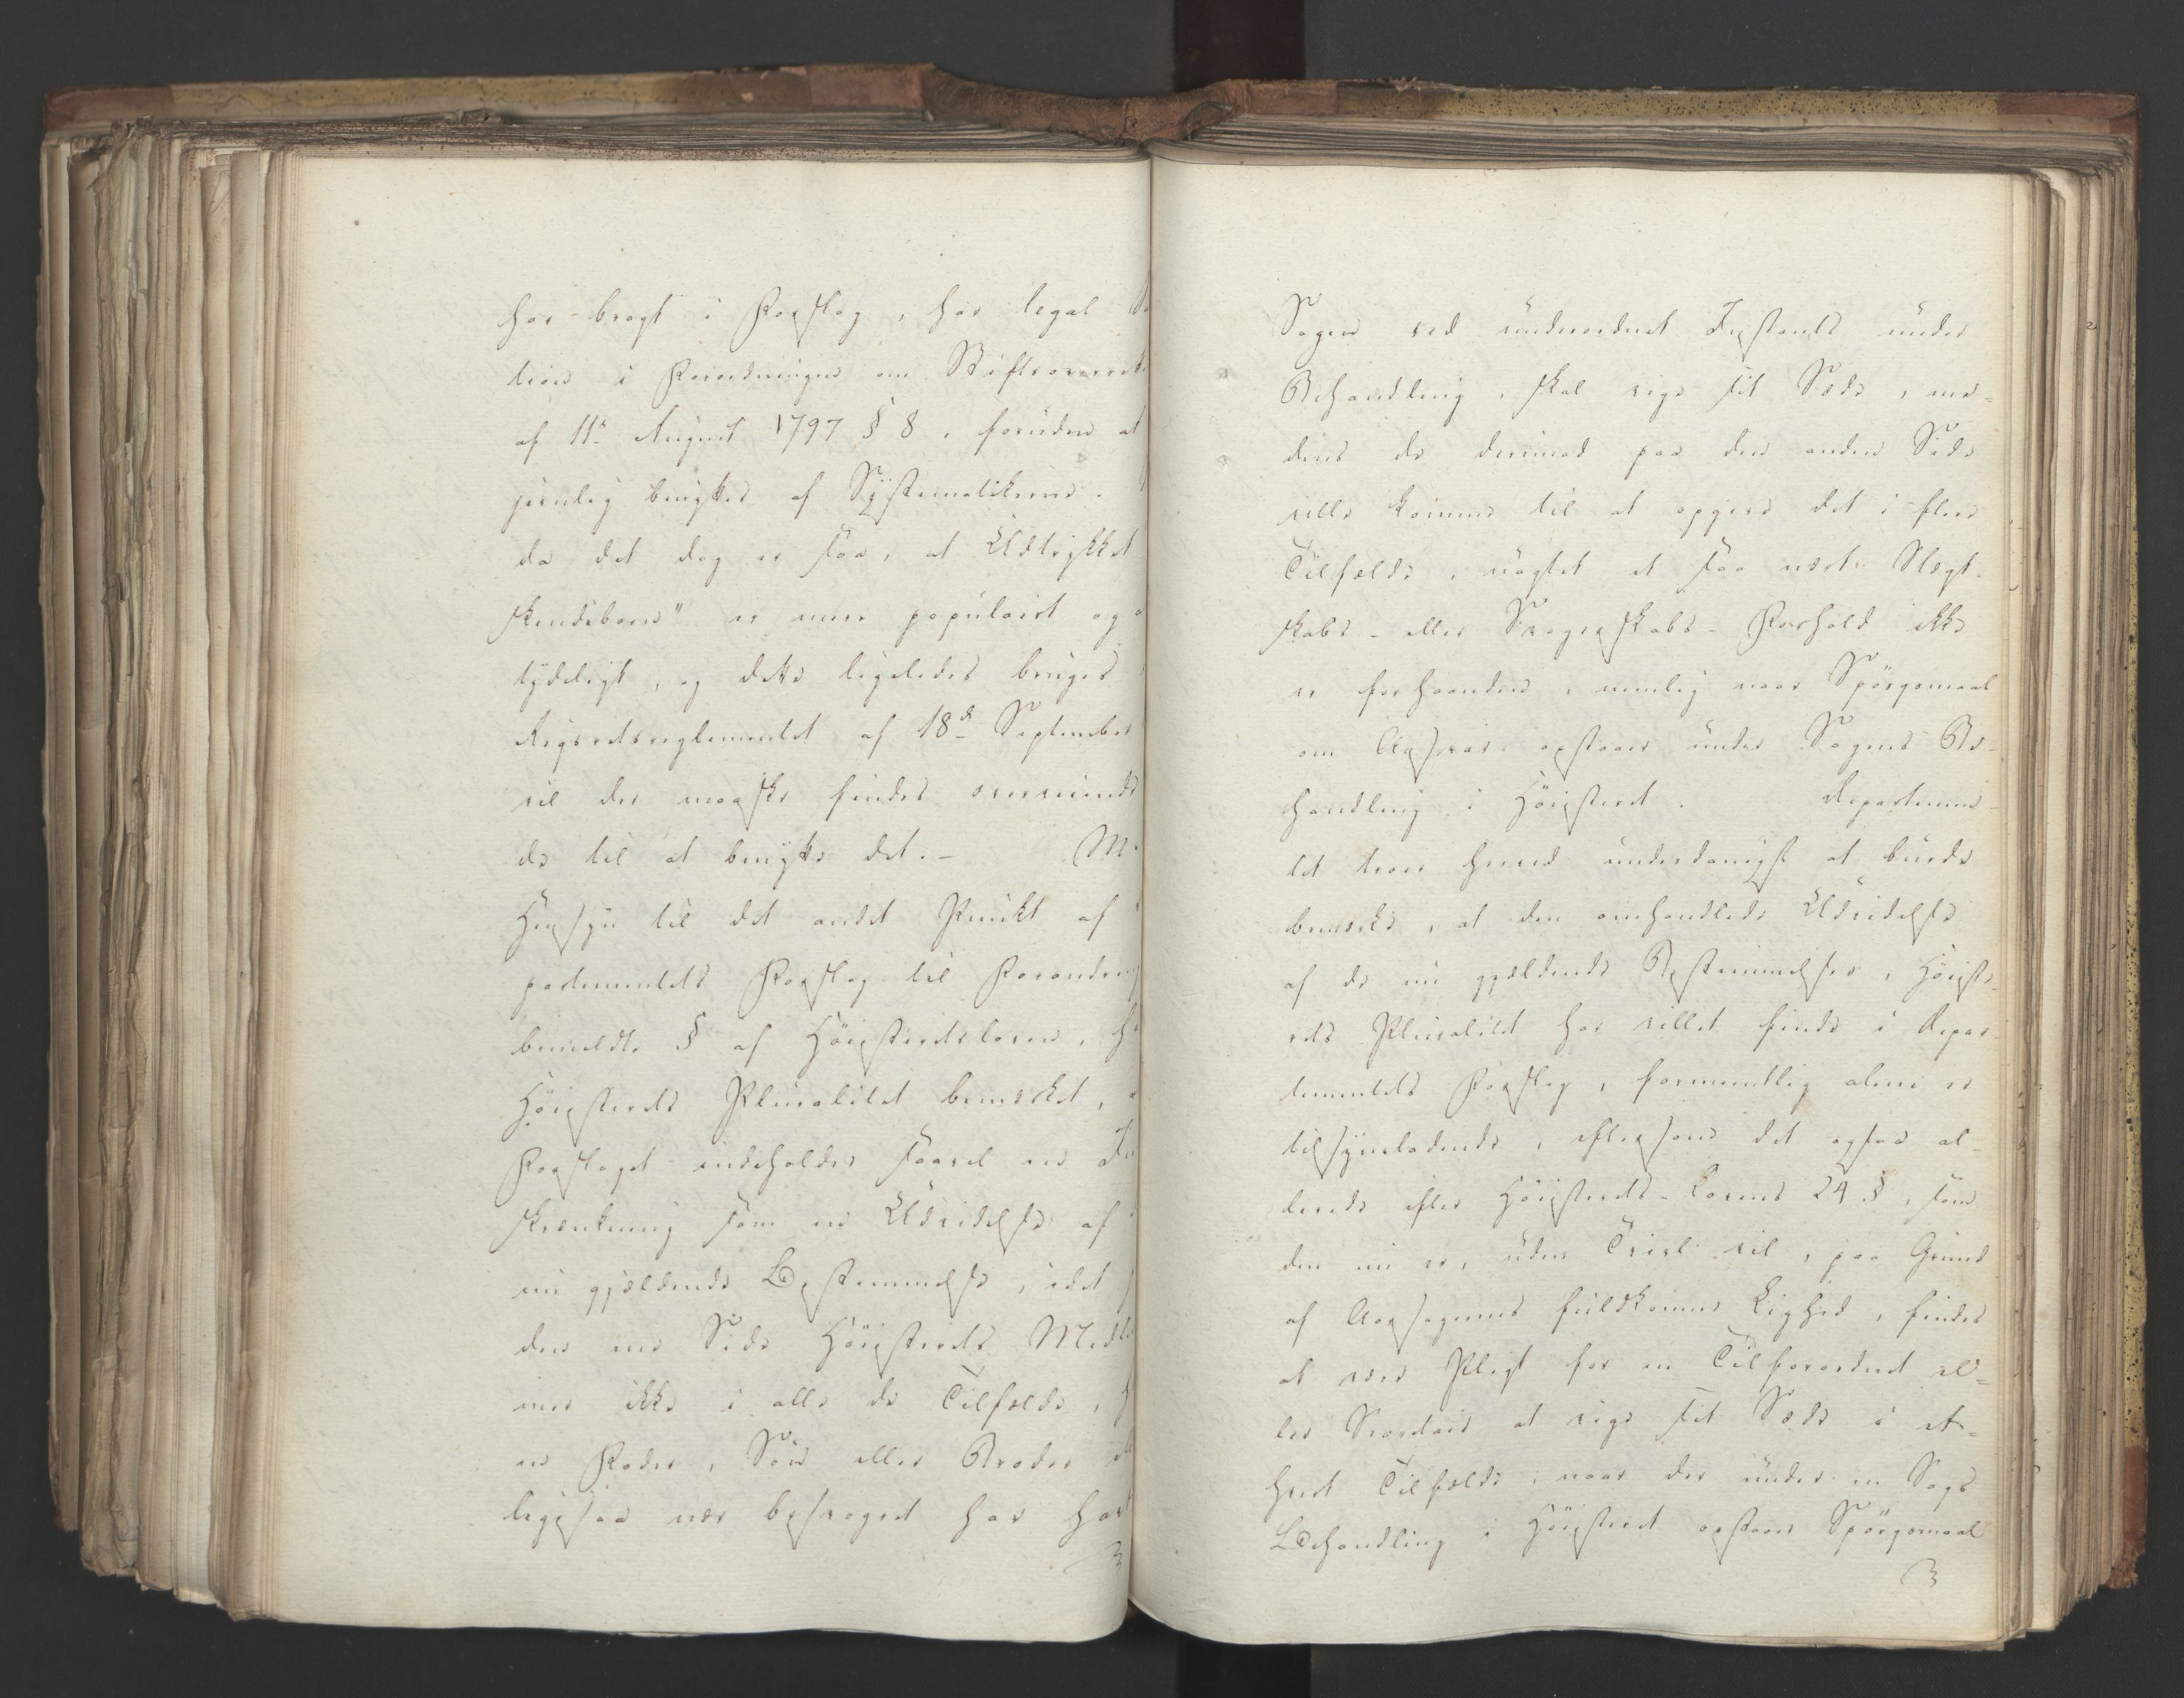 har bragt i Forslag, har legal
tion i Forordningen om Stiftsoverret
af 11te August 1797 § 8, foruden at
jevnlig benyttes af Systematikerne.
da det dog er saa, at Udtrykket
skendebørn" er mere populairt og
tydeligt, og dette ligeledes bruges
Rigsretsreglementet af 18de September
vil der maaske findes overveiende
de til at benytte det. –
Hensyn til det andet Punkt af
partementets Forslag til Forandring
bemeldte § af Høiesteretsloven,
Høiesterets Pluralitet bemærket,
Forslaget indeholder saavel en
skrænkning som en Udvidelse af
nu gjældende Bestemmelse, idet
den ene Side Høiesterets
mer ikke i alle de Tilfælde,
en Fader, Søn eller Broder
ligesaa nær besvogret har
Sagen ved underordnet Instants under
Behandling, skal vige sit Sæde, me-
dens de derimod paa den anden Side
ville komme til at opgive det i flere
Tilfælde, uagtet et saa nært Slægt-
skabs- eller Svogerskabs-Forhold ikke
er forhaanden, nemlig naar Spørgsmaal
om Ansvar opstaaer under Sagens Be-
handling i Høiesteret. Departemen-
tet troer herved underdanigst at burde
bemærke, at den omhandlede Udvidelse
af de nu gjældende Bestemmelser, Høieste-
rets Pluralitet har villet finde i Depar-
tementets Forslag, formeentlig alene er
tilsyneladende, eftersom det ogsaa al-
lerede efter Høiesterets-Lovens 24 §, som
den nu er, uden Tvivl vil, paa Grund
af Aarsagernes fuldkomne Lighed, findes
at være Pligt for en Tilforordnet el-
ler Extraordinair at vige sit Sæde i et-
hvert Tilfælde, naar der under en Sags
Behandling i Høiesteret opstaaer Spørgsmaal